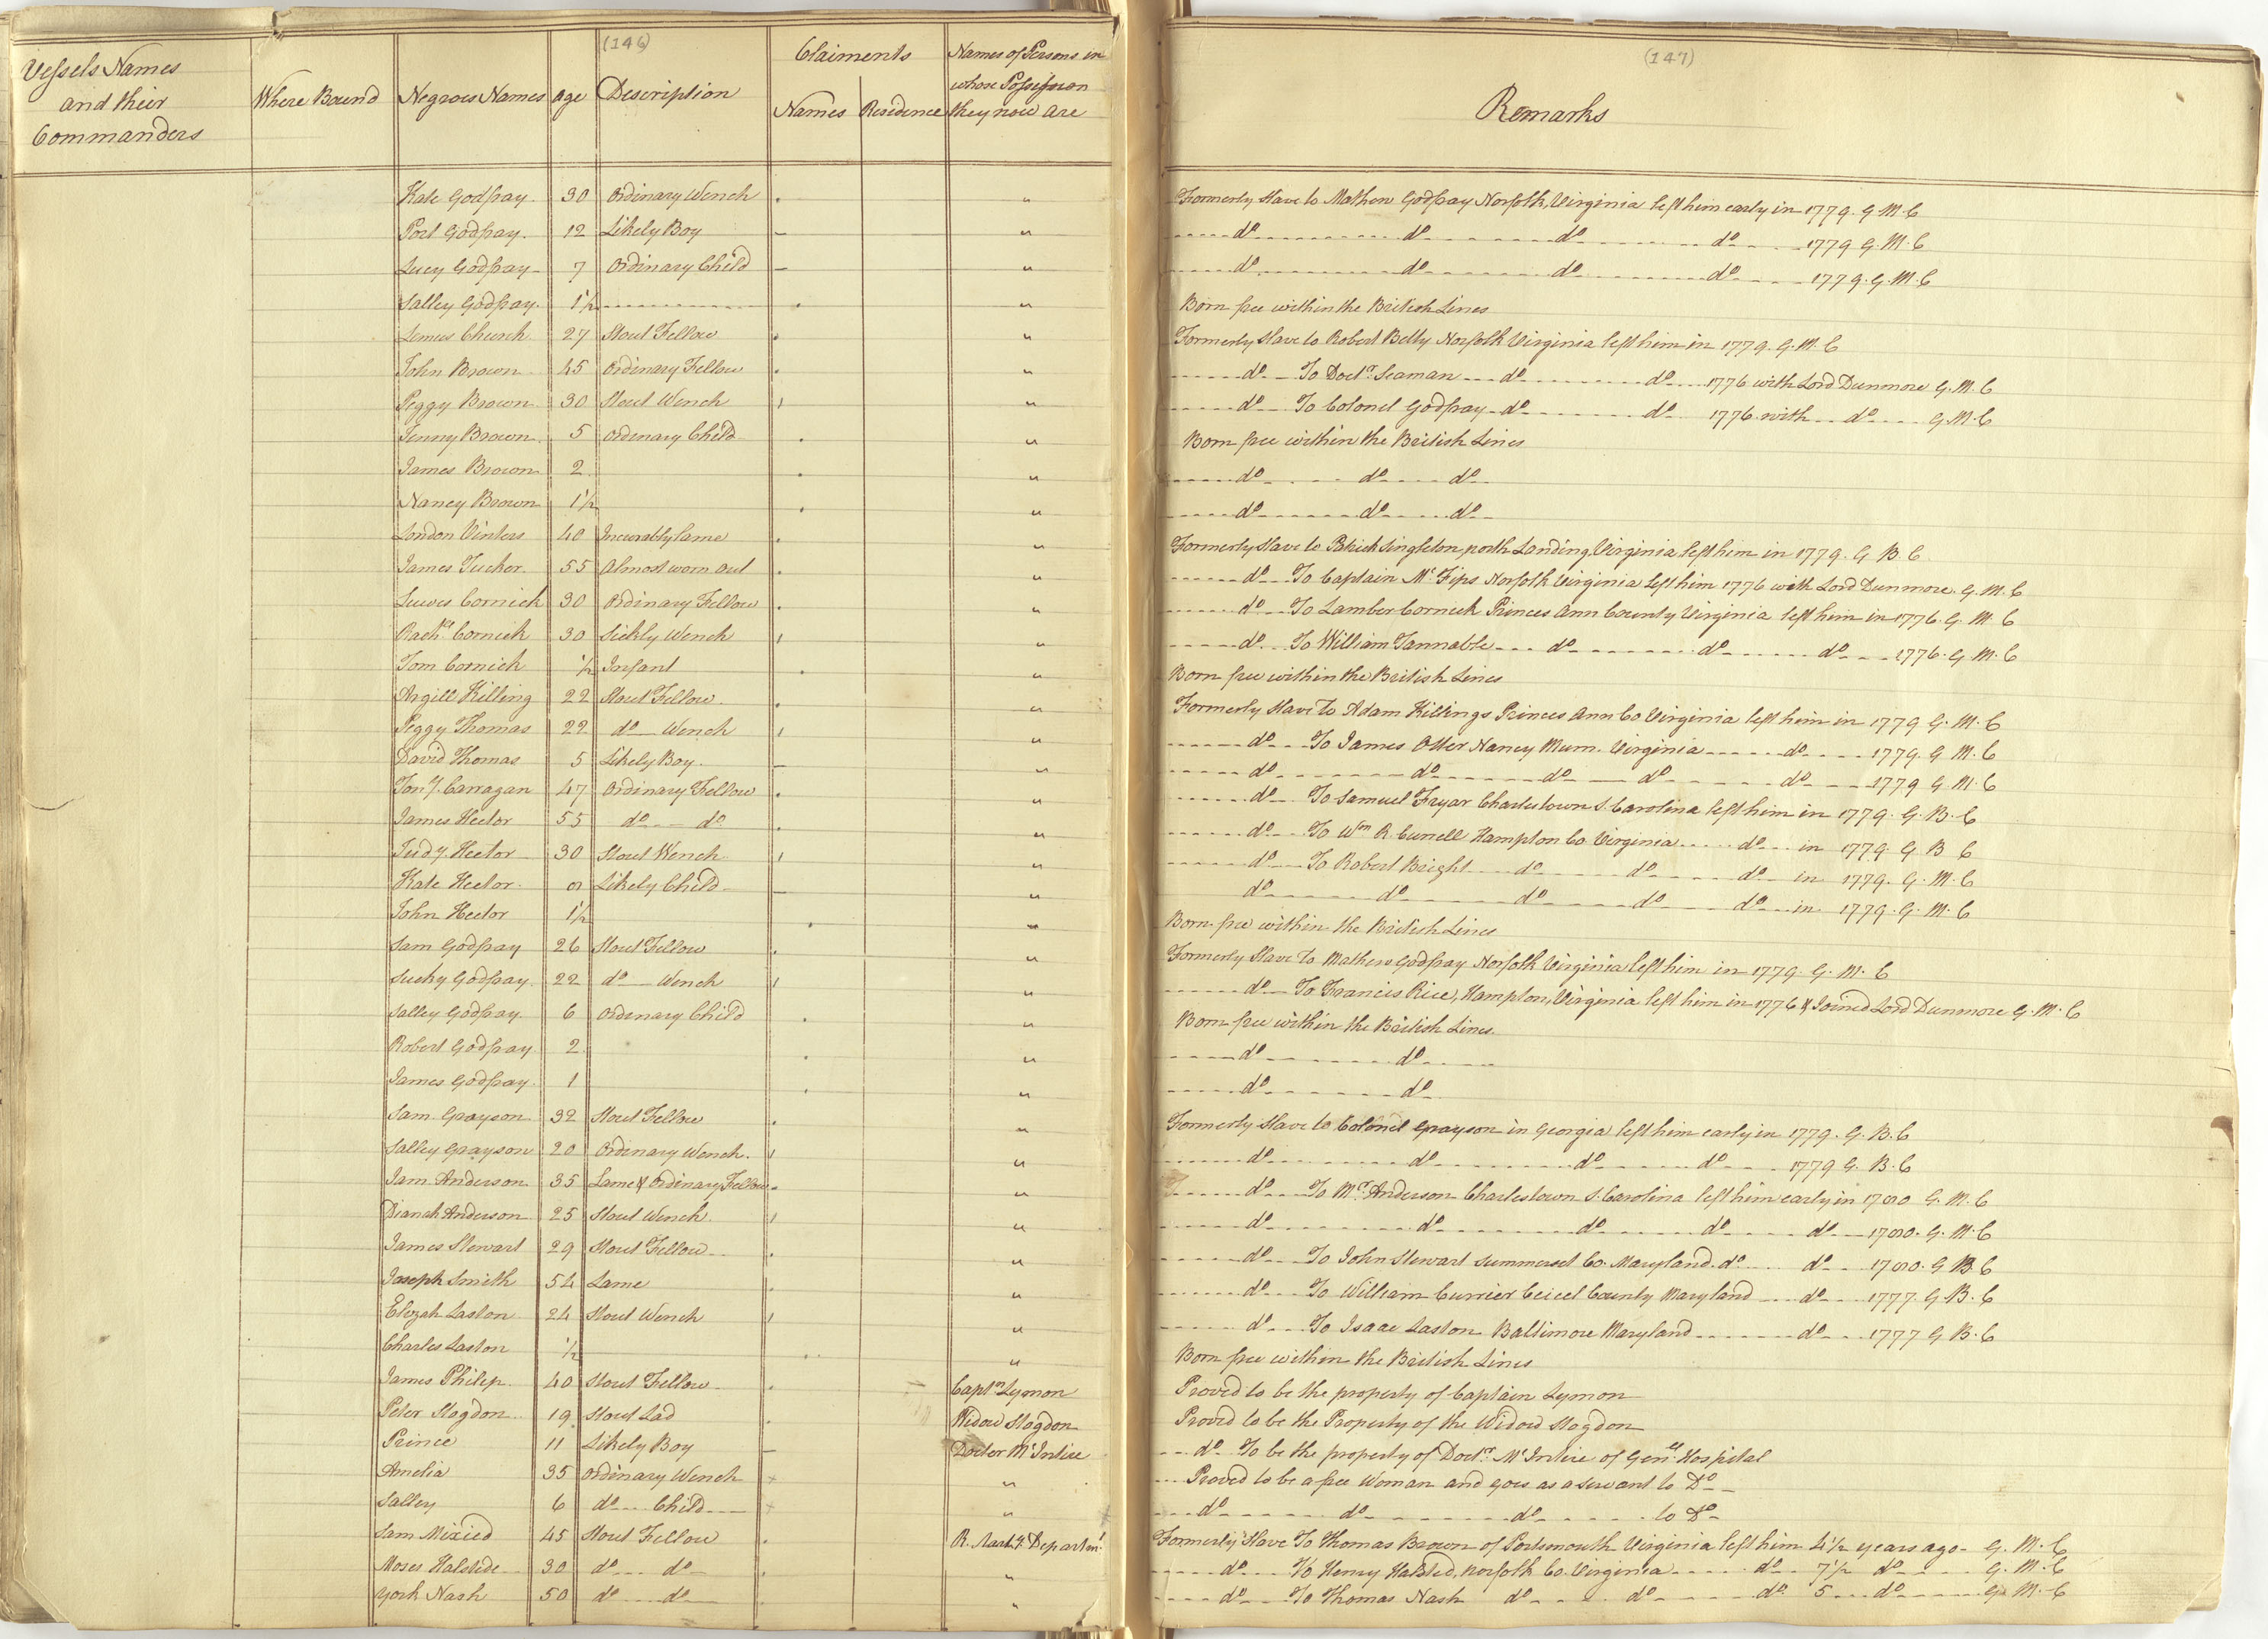 (146)
Vessels Names and their Commanders | Where Bound | Negroes Names | Age | Description | Claiments Names | Residence | Names of Persons in whose Possession they now are
(147)
Remarks
Kate Godfray 30 Ordinary Wench " Formerly Slave to Mathew Godfray Norfolk, Virginia left him early in 1779. G M C
Port Godfray. 12 Likely Boy " do do do do 1779 G. M. C
Lucy Godfray 7 Ordinary Child " do do do do 1779. G. M. C
Salley Godfray. 1½ " Born free within the British Lines
Lemus Church 27 Stout Fellow " Formerly Slave to Robert Betty Norfolk Virginia left him in 1779. G. M. C
John Brown 45 Ordinary Fellow " do To Doctr Seaman do do 1776 with Lord Dunmore G. M. C
Peggy Brown 30 Stout Wench " do To Colonel Godfray do do 1776 with do G. M. C
Jenny Brown 5 Ordinary Child " Born free within the British Lines
James Brown 2 " do do do
Nancy Brown 1½ " do do do
London Vinters 40 Incurably lame " Formerly Slave to Patrick Singleton, north Landing, Virginia left him in 1779. G B. C
James Tucker 55 Almost worn out " do To Captain Mc Fips Norfolk Virginia Left him 1776 with Lord Dunmore. G. M. C
Lewis Cornick 30 Ordinary Fellow " do To Lamber Cornick Princes Ann County Virginia left him in 1776. G. M. C
Rachl Cornick 30 Sickly Wench " do To William Tannable do do do 1776. G. M. C
Tom Cornick ½ Infant " Born free within the British Lines
Argill Killing 22 Stout Fellow " Formerly Slave To Adam Killings Princes Ann Co Virginia left him in 1779 G. M. C
Peggy Thomas 22 do Wench " do To James Otter Nancy Mum. Virginia do 1779. G M. C
David Thomas 5 Likely Boy. " do do do do do 1779 G M. C
Tony Carragan 47 Ordinary Fellow " do To Samuel Fryar Charlestown S. Carolina left him in 1779. G. B. C
James Hector 55 do do " do To Wm R. Curnell Hampton Co. Virginia do in 1779. G B C
Judy Hector 30 Stout Wench " do To Robert Bright do do do in 1779. G. M. C
Kate Hector 8 Likely Child " do do do do do in 1779. G. M. C
John Hector 1½ " Born free within the British Lines
Sam Godfray 26 Stout Fellow " Formerly Slave To Mathew Godfray Norfolk Virginia left him in 1779. G. M. C
Sucky Godfray 22 do Wench " do To Francis Rice, Hampton, Virginia left him in 1776 & Joined Lord Dunmore G. M. C
Salley Godfray. 6 Ordinary Child " Born free within the British Lines
Robert Godfray 2 " do do
James Godfray 1 " do do
Sam Grayson 32 Stout Fellow " Formerly Slave to Colonel Grayson in Georgia left him early in 1779. G. B. C
Salley Grayson 20 Ordinary Wench. " do do do do 1779 G. B. C
Jam Anderson 35 Lame & Ordinary Fellow " do To Mr Anderson Charlestown S. Carolina left him early in 1780 G. M. C
Dianah Anderson 25 Stout Wench " do do do do do 1780. G. M. C
James Stewart 29 Stout Fellow " do To John Stewart Summerset Co. Maryland do do 1780. G B. C
Joseph Smith 54 Lame " do To William Currier Ceicel County Maryland do 1777. G. B. C
Elizah Laston 24 Stout Wench " do To Isaac Laston Baltimore Maryland do 1777 G B. C
Charles Laston ½ " Born free within the British Lines
James Philip 40 Stout Fellow Captn Lymon Proved to be the property of Captain Lymon
Peter Slogdon 19 Stout Lad Widow Slogdon Proved to be the Property of the Widow Slogdon
Prince 11 Likely Boy Doctor McIntire do To be the property of Doctr McIntire of Genel Hospital
Amelia 35 Ordinary Wench " Proved to be a free Woman and goes as a Servant to Do
Salley 6 do Child " do do do to Do
Sam Mixied 45 Stout Fellow Formerly Slave To Thomas Brown of Portsmouth Virginia left him 4½ years ago G. M. C
Moses Halstede 30 do do " do To Henry Halsted, Norfolk Co. Virginia do 7½ do G. M. C
York Nash 50 do do " do To Thomas Nash do do do 5 do G M. C